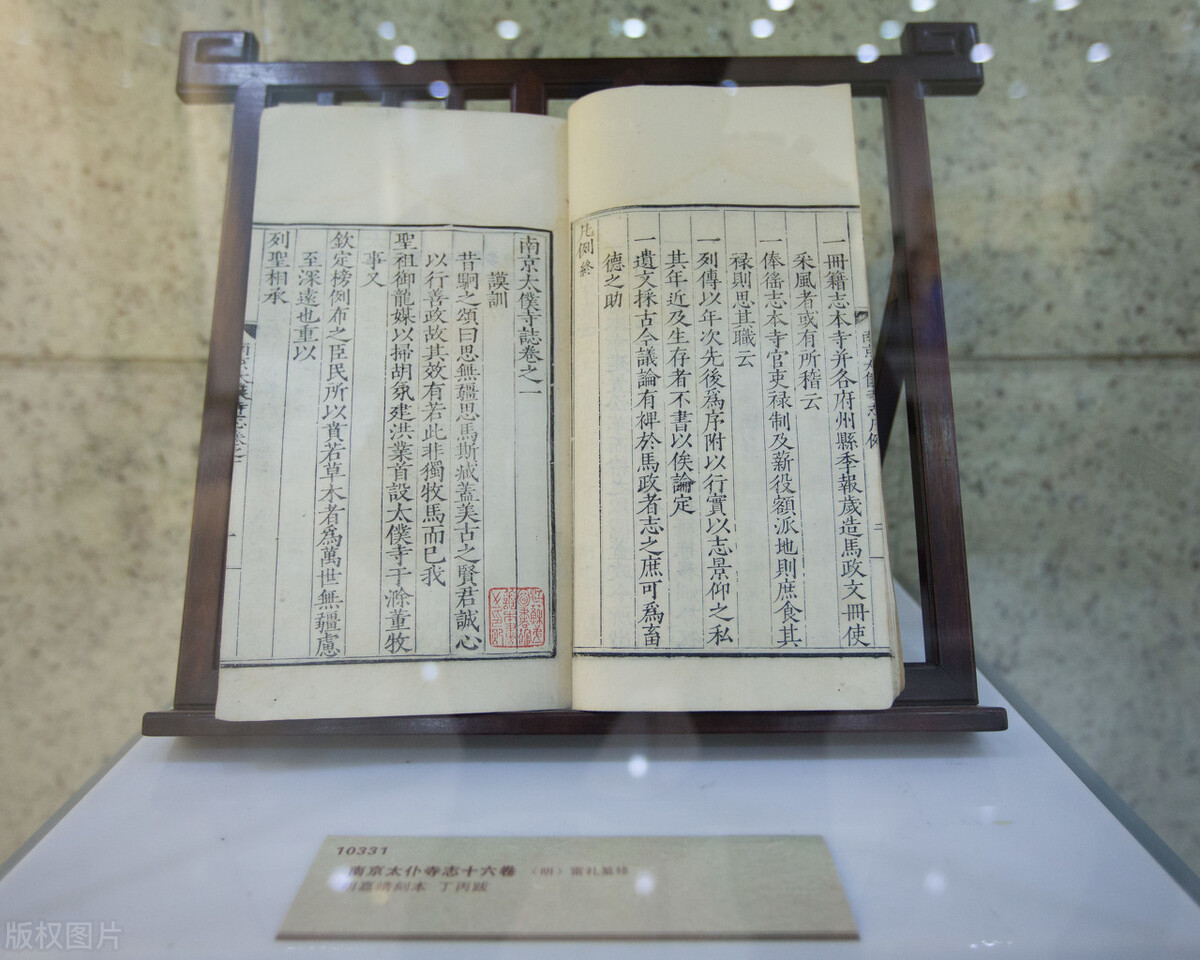 一冊籍志本寺并各府州縣季報歲造馬政文冊使
采風者或有所稽云
一俸徭志本寺官吏祿制及薪役額派地則庶食其
祿則思其職云
一列傳以年次先後為序附以行實以志景仰之私
其年近及生存者不書以俟論定
一遺文採古今議論有裨於馬政者志之庶可為畜
德之助
凡例終
南京太僕寺誌卷之一
謨訓
昔駉之頌曰思無疆思馬斯臧蓋美古之賢君誠心
以行善政故其效有若此非獨牧馬而已我
聖祖御龍媒以掃胡氛建洪業首設太僕寺于滁董牧
事又
欽定榜例布之臣民所以賁若草木者為萬世無疆慮
至深遠也重以
列聖相承
10331
南京太仆寺志十六卷 （明）雷礼纂修
明嘉靖刻本 丁丙跋
版权图片